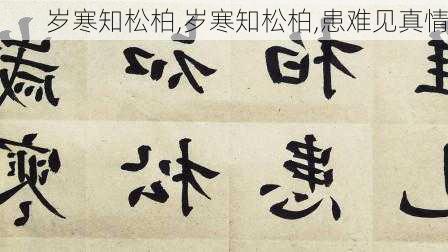 岁寒知松柏,岁寒知松柏,患难见真情
歲寒
知松
柏患